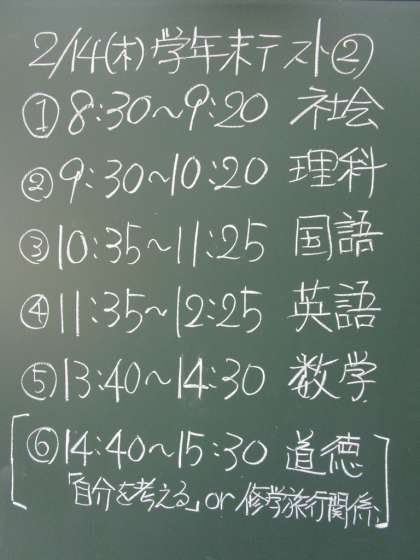 2/14(木)学年末テスト②
①8:30~9:20 社会
②9:30~10:20 理科
③10:35~11:25 国語
④11:35~12:25 英語
⑤13:40~14:30 数学
[⑥14:40~15:30 道徳
「自分を考える」or 修学旅行関係]